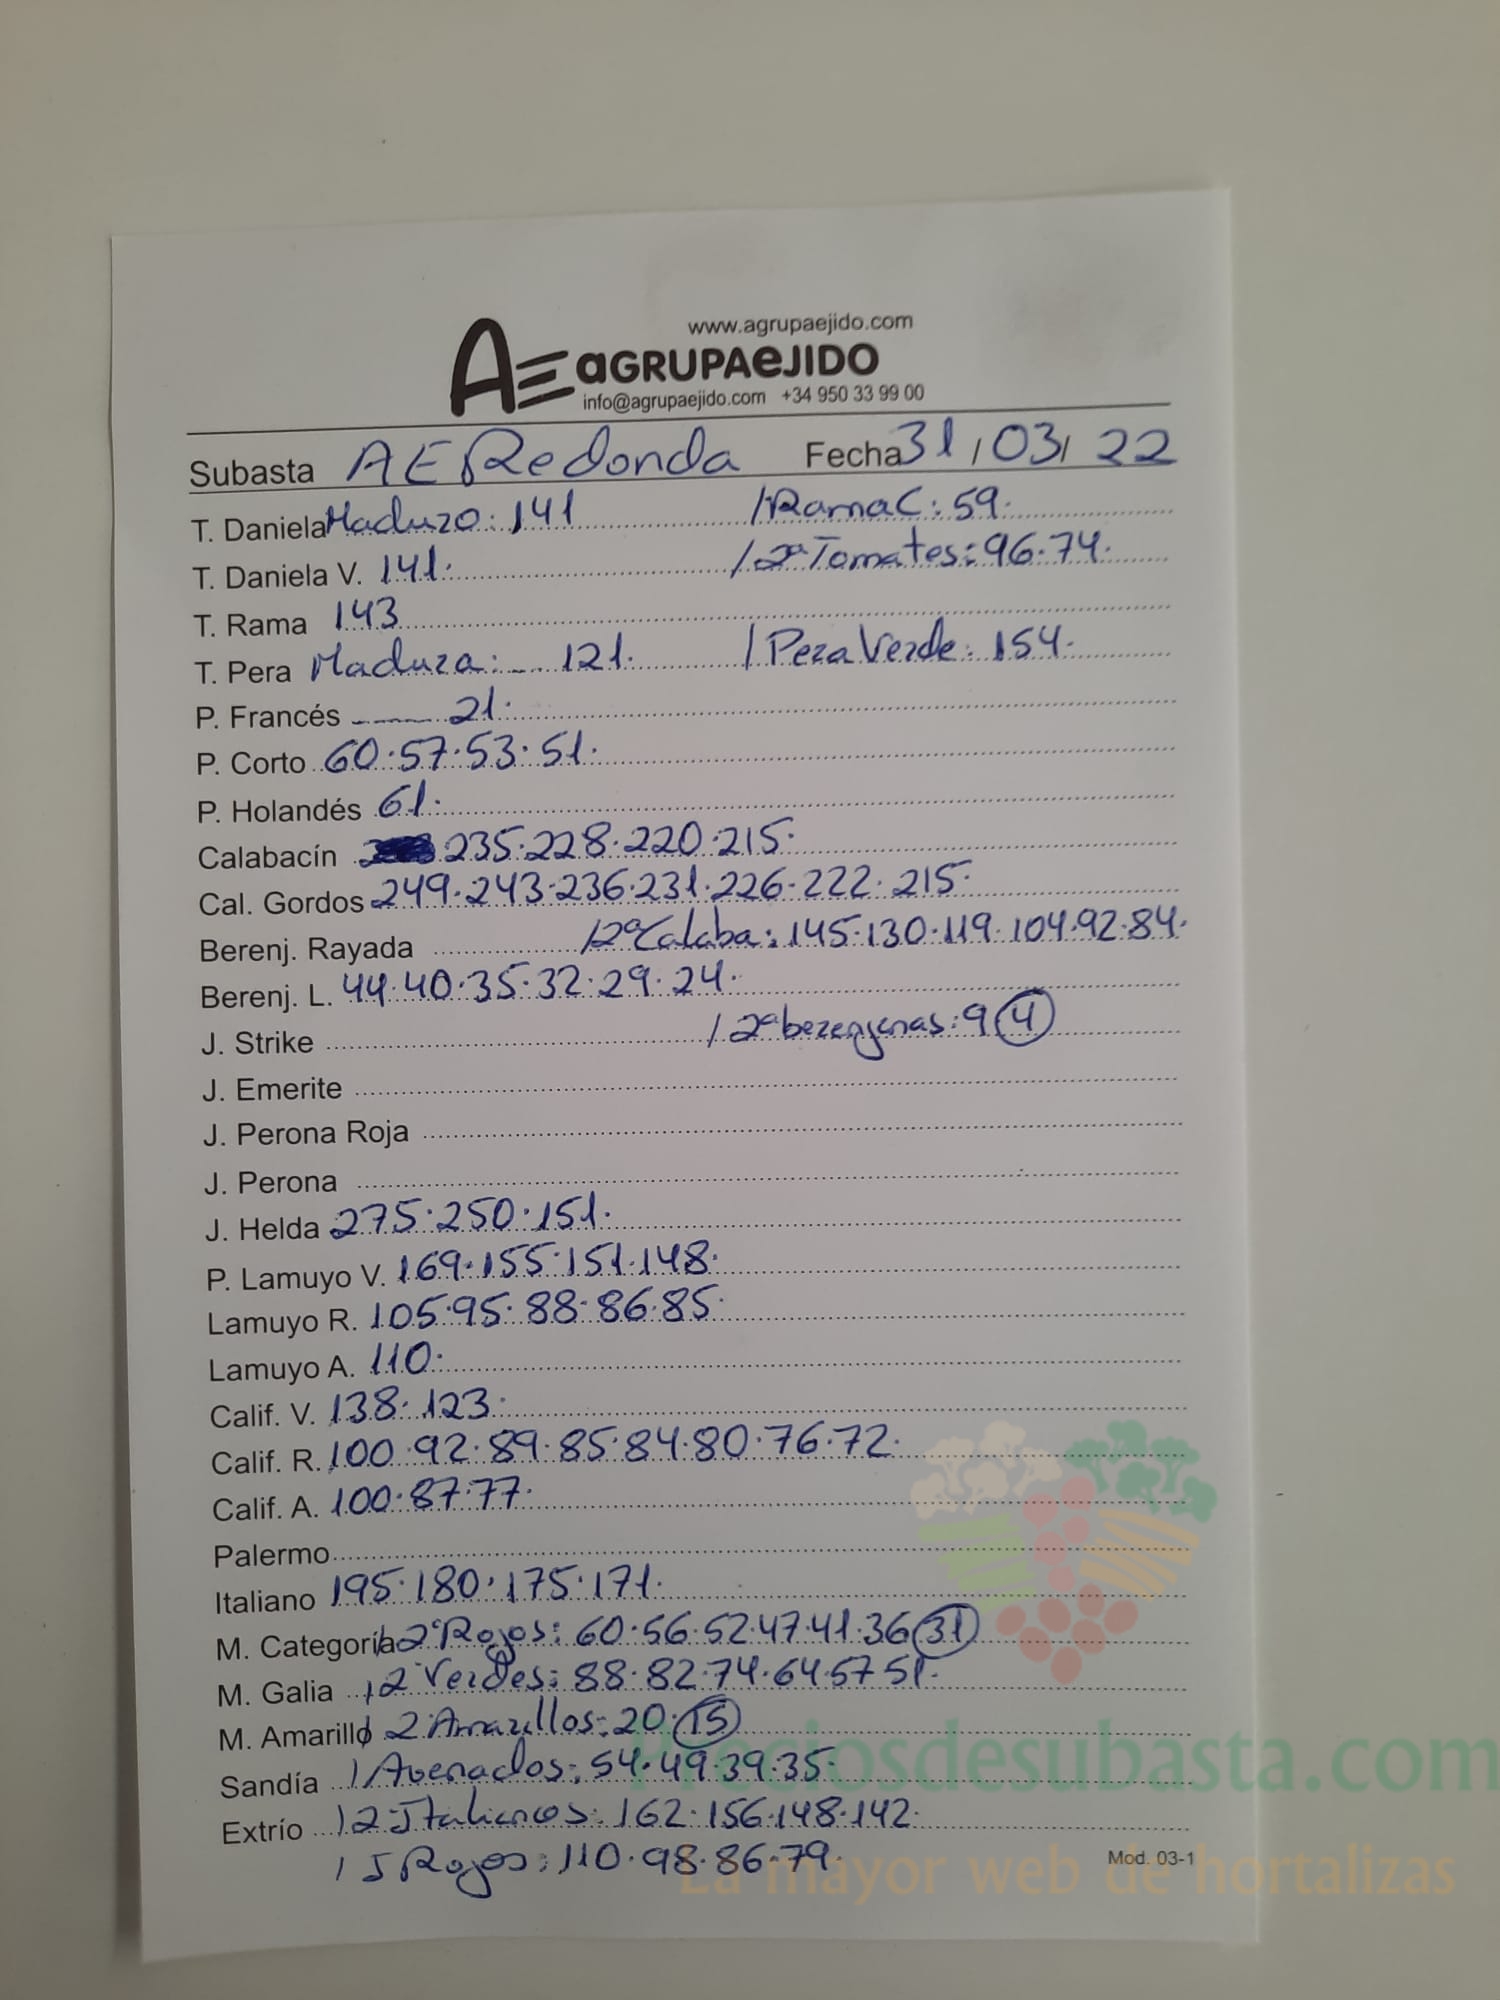 www.agrupaejido.com
AE aGRUPAeJIDO
info@agrupaejido.com +34 950 33 99 00
Subasta AE Redonda Fecha 31/03/22
T. Daniela Maduro: 141 /Rama C: 59.
T. Daniela V. 141. /2ª Tomates: 96.74.
T. Rama 143
T. Pera Madura: 121. /Pera Verde: 154.
P. Francés 21.
P. Corto 60.57.53.51.
P. Holandés 61.
Calabacín 235.228.220.215.
Cal. Gordos 249.243.236.231.226.222.215.
Berenj. Rayada /2ª Calaba: 145.130.119.104.92.84.
Berenj. L. 44.40.35.32.29.24.
J. Strike /2ª berenjenas: 9 4
J. Emerite
J. Perona Roja
J. Perona
J. Helda 275.250.151.
P. Lamuyo V. 169.155.151.148.
Lamuyo R. 105.95.88.86.85.
Lamuyo A. 110.
Calif. V. 138.123.
Calif. R. 100.92.89.85.84.80.76.72.
Calif. A. 100.87.77.
Palermo
Italiano 195.180.175.171.
M. Categoría /2ª Rojos: 60.56.52.47.41.36 31
M. Galia /2 Verdes: 88.82.74.64.57.51.
M. Amarillo / 2 Amarillos: 20.15
Sandía /Asenados: 54.49.39.35.
Extrío /2 Italianos: 162.156.148.142.
/ J Rojos: 110.98.86.79.
Mod. 03-1
Preciosdesubasta.com
La mayor web de hortalizas